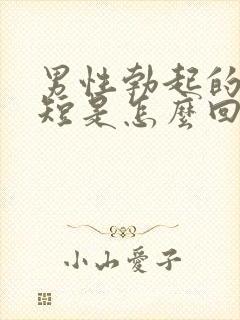 男性勃起的
短是怎麼回
小山愛子